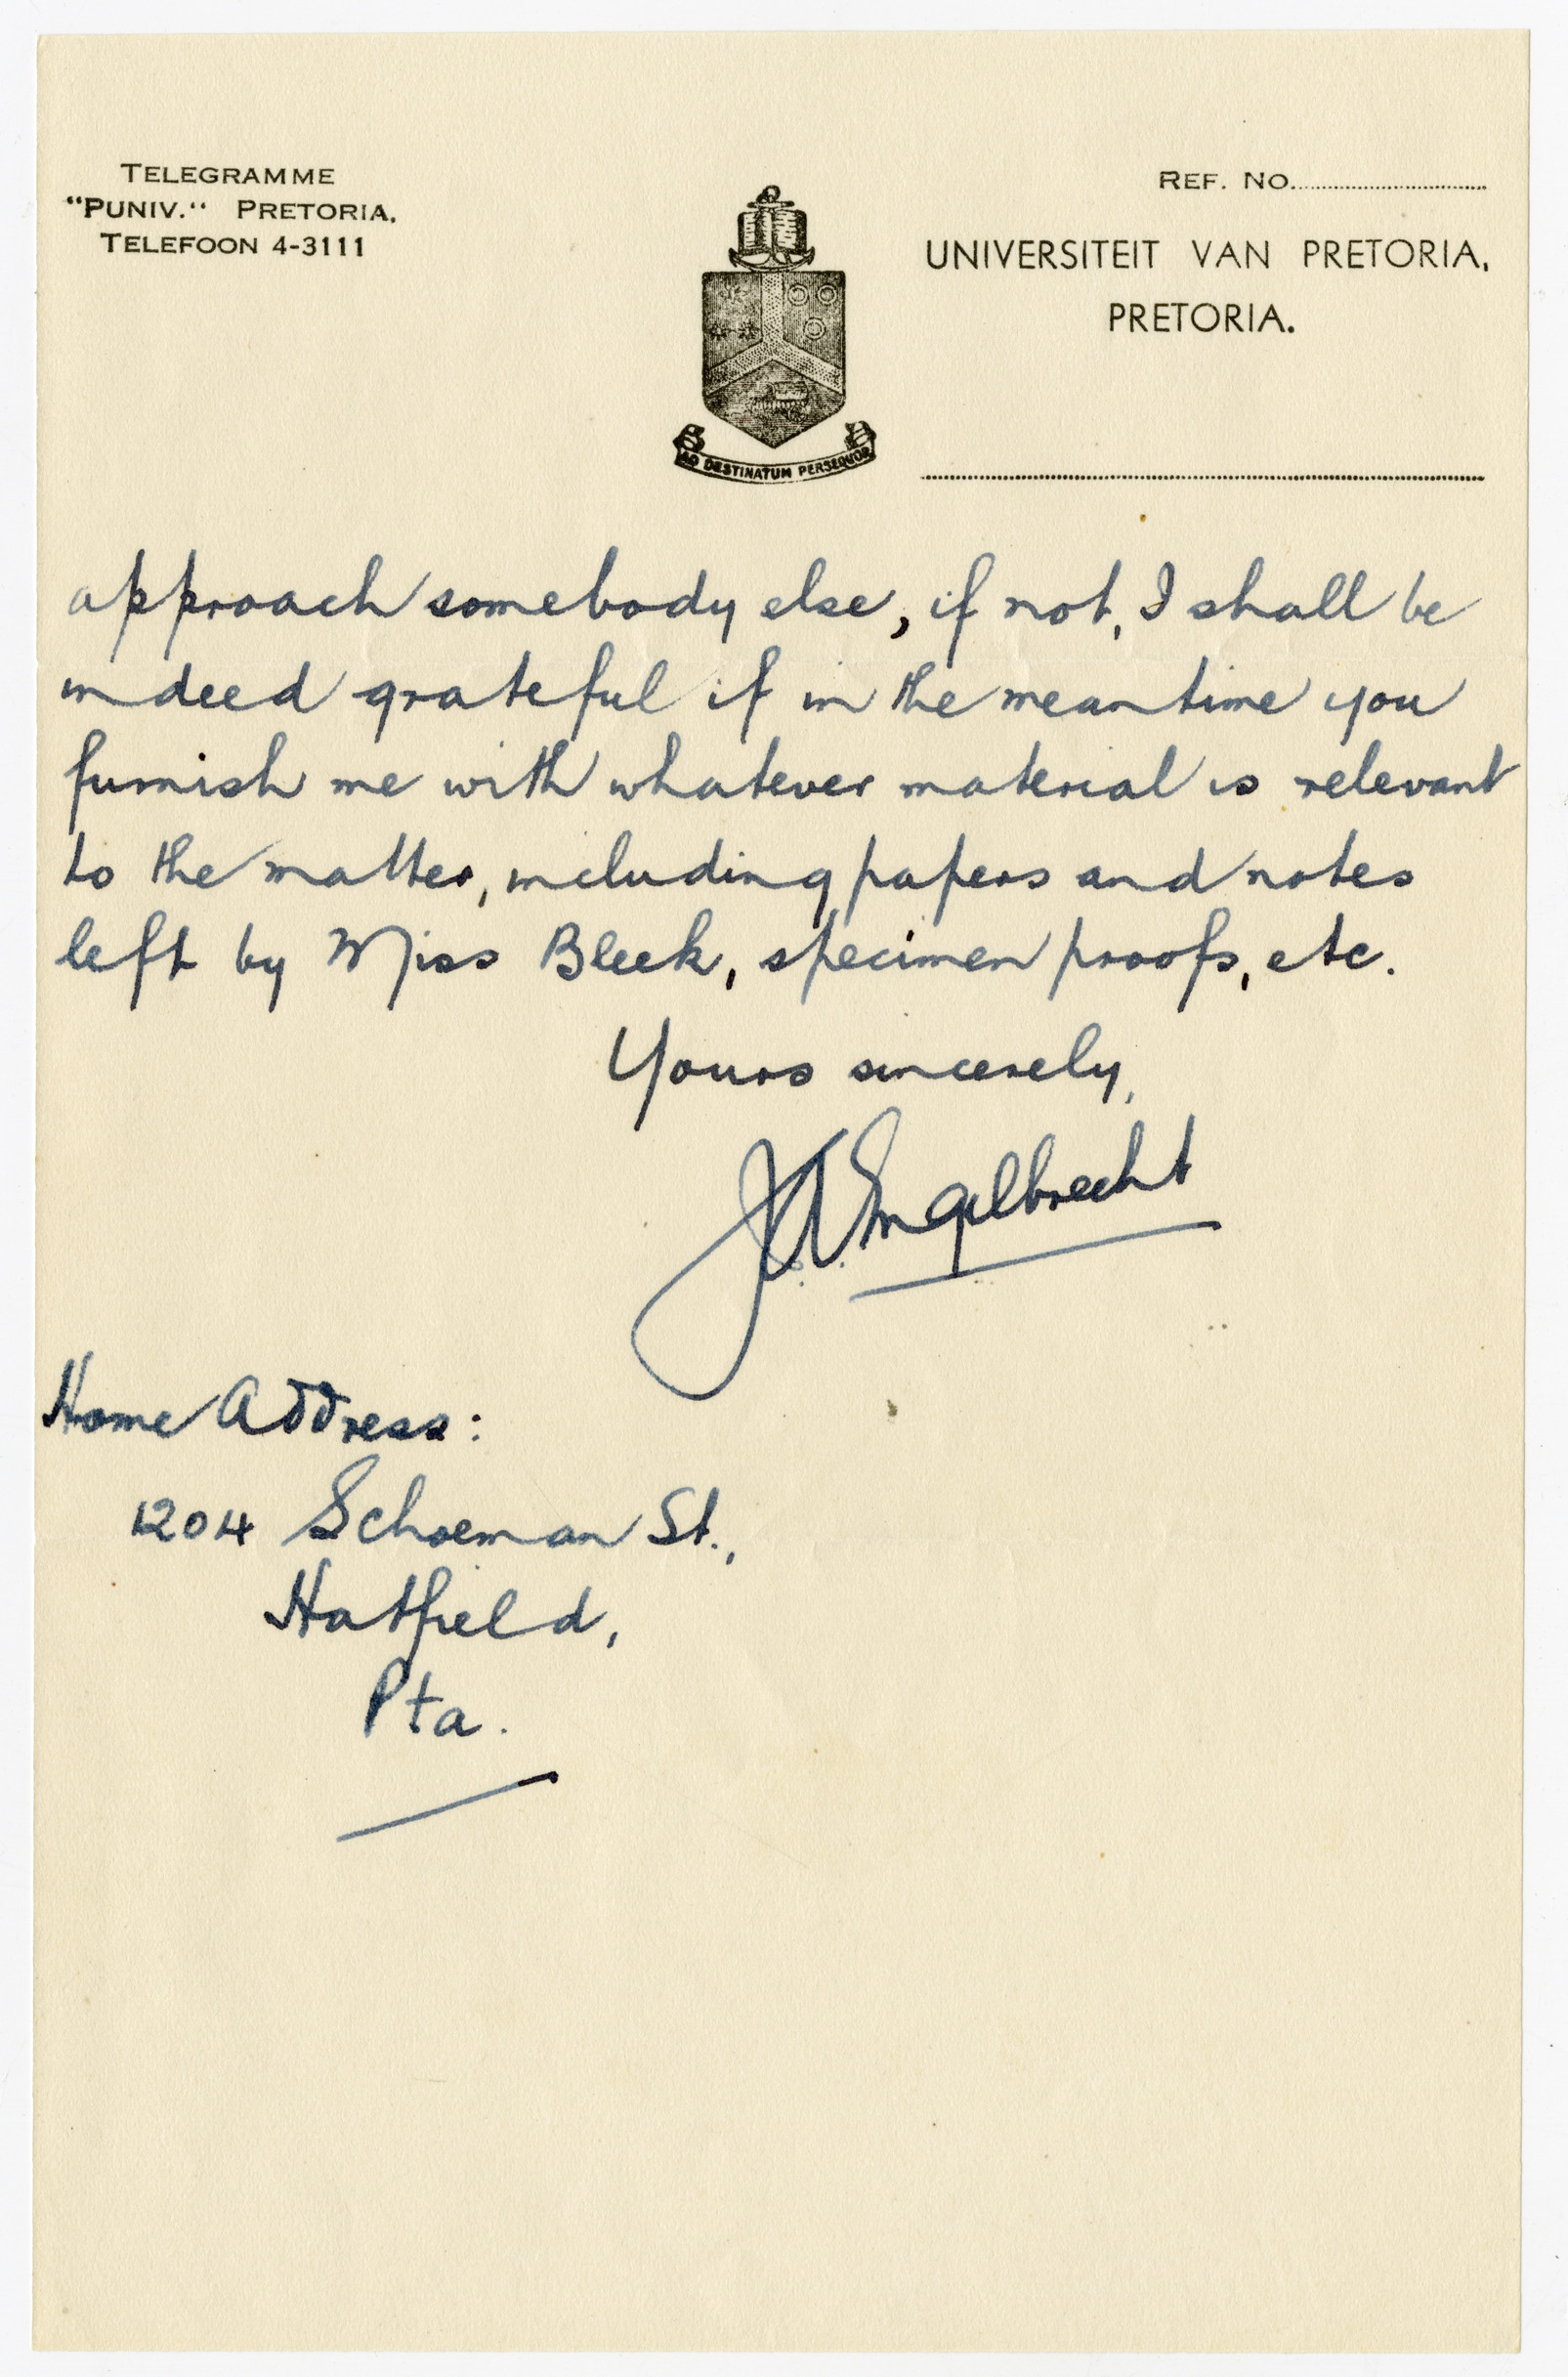 TELEGRAMME
"PUNIV." PRETORIA.
TELEFOON 4-3111
REF. NO.
UNIVERSITEIT VAN PRETORIA,
PRETORIA.
AD DESTINATUM PERSEQUOR
approach somebody else, if not, I shall be
indeed grateful if in the meantime you
furnish me with whatever material is relevant
to the matter, including papers and notes
left by Miss Bleek, specimen proofs, etc.
Yours sincerely,
JA Engelbrecht
Home Address:
1204 Schoeman St.,
Hatfield,
Pta.